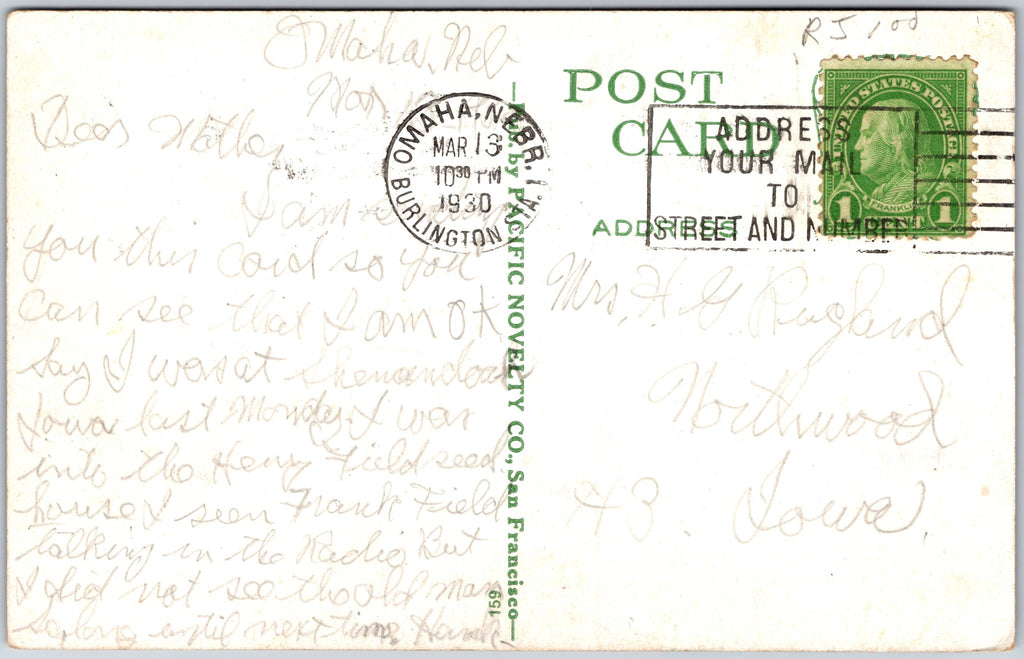 RJ 1.00
Omaha, Neb
Mar
Dear Mother
I am
you this card so you
can see that I am OK
Say I was at Shenandoah
Iowa last Monday. I was
into the Henry Field seed
house I seen Frank Field
talking in the Radio But
I did not see the old man
So long until next time, Hank
OMAHA, NEBR.
MAR 13
10 30 PM
1930
BURLINGTON STA.
— Pub. by PACIFIC NOVELTY CO., San Francisco —
159
POST
CARD
ADDRESS
ADDRESS
YOUR MAIL
TO
STREET AND NUMBER
UNITED STATES POSTAGE
FRANKLIN
1 1
Mrs, H. G. Rugland
Northwood
Iowa.